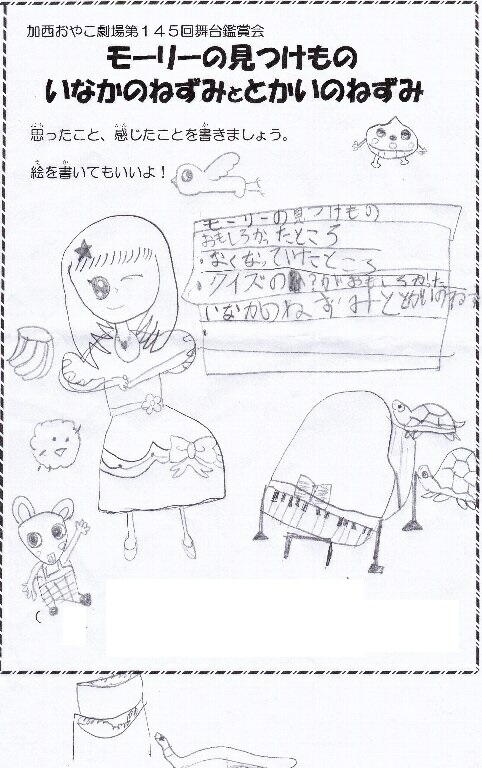 加西おやこ劇場第１４５回舞台鑑賞会
モーリーの見つけもの
いなかのねずみととかいのねずみ
思ったこと、感じたことを書きましょう。
絵を書いてもいいよ！
モーリーの見つけもの
おもしろかったところ
・なくなっていけところ
・クイズの?がおもしろかった
いなかのねずみととかいのねず